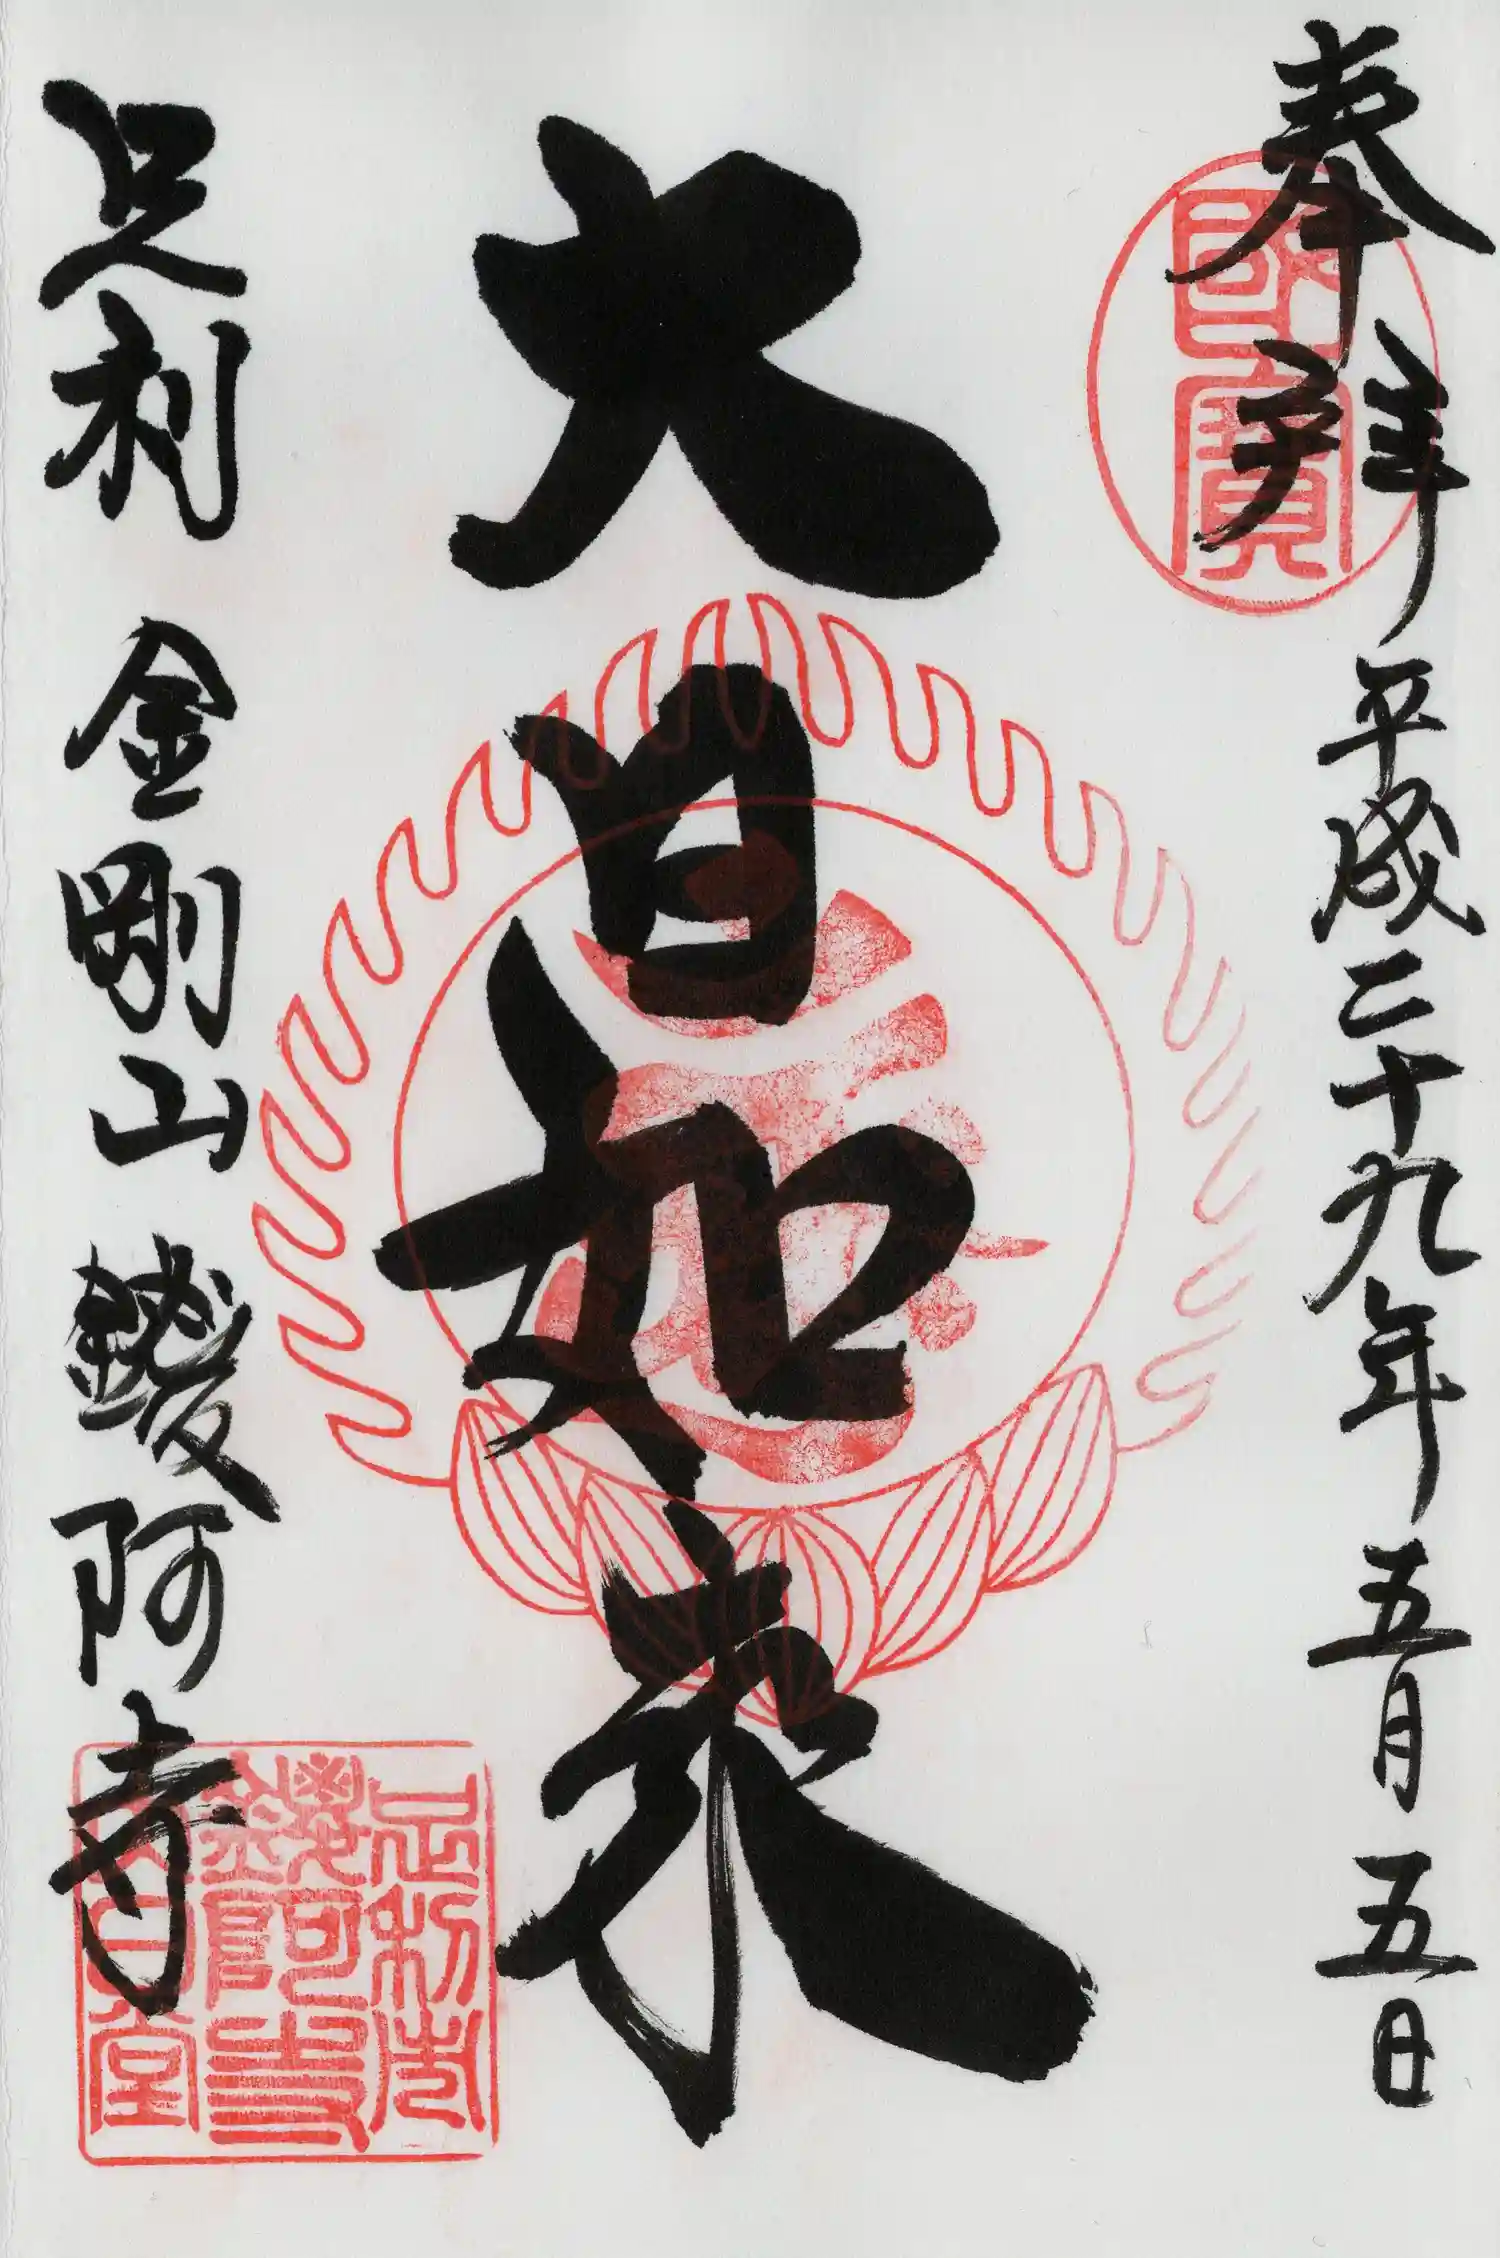 奉拝 平成二十九年五月五日
國寶
大日如来
足利 金剛山 鑁阿寺
足利市
鑁阿寺
大日堂